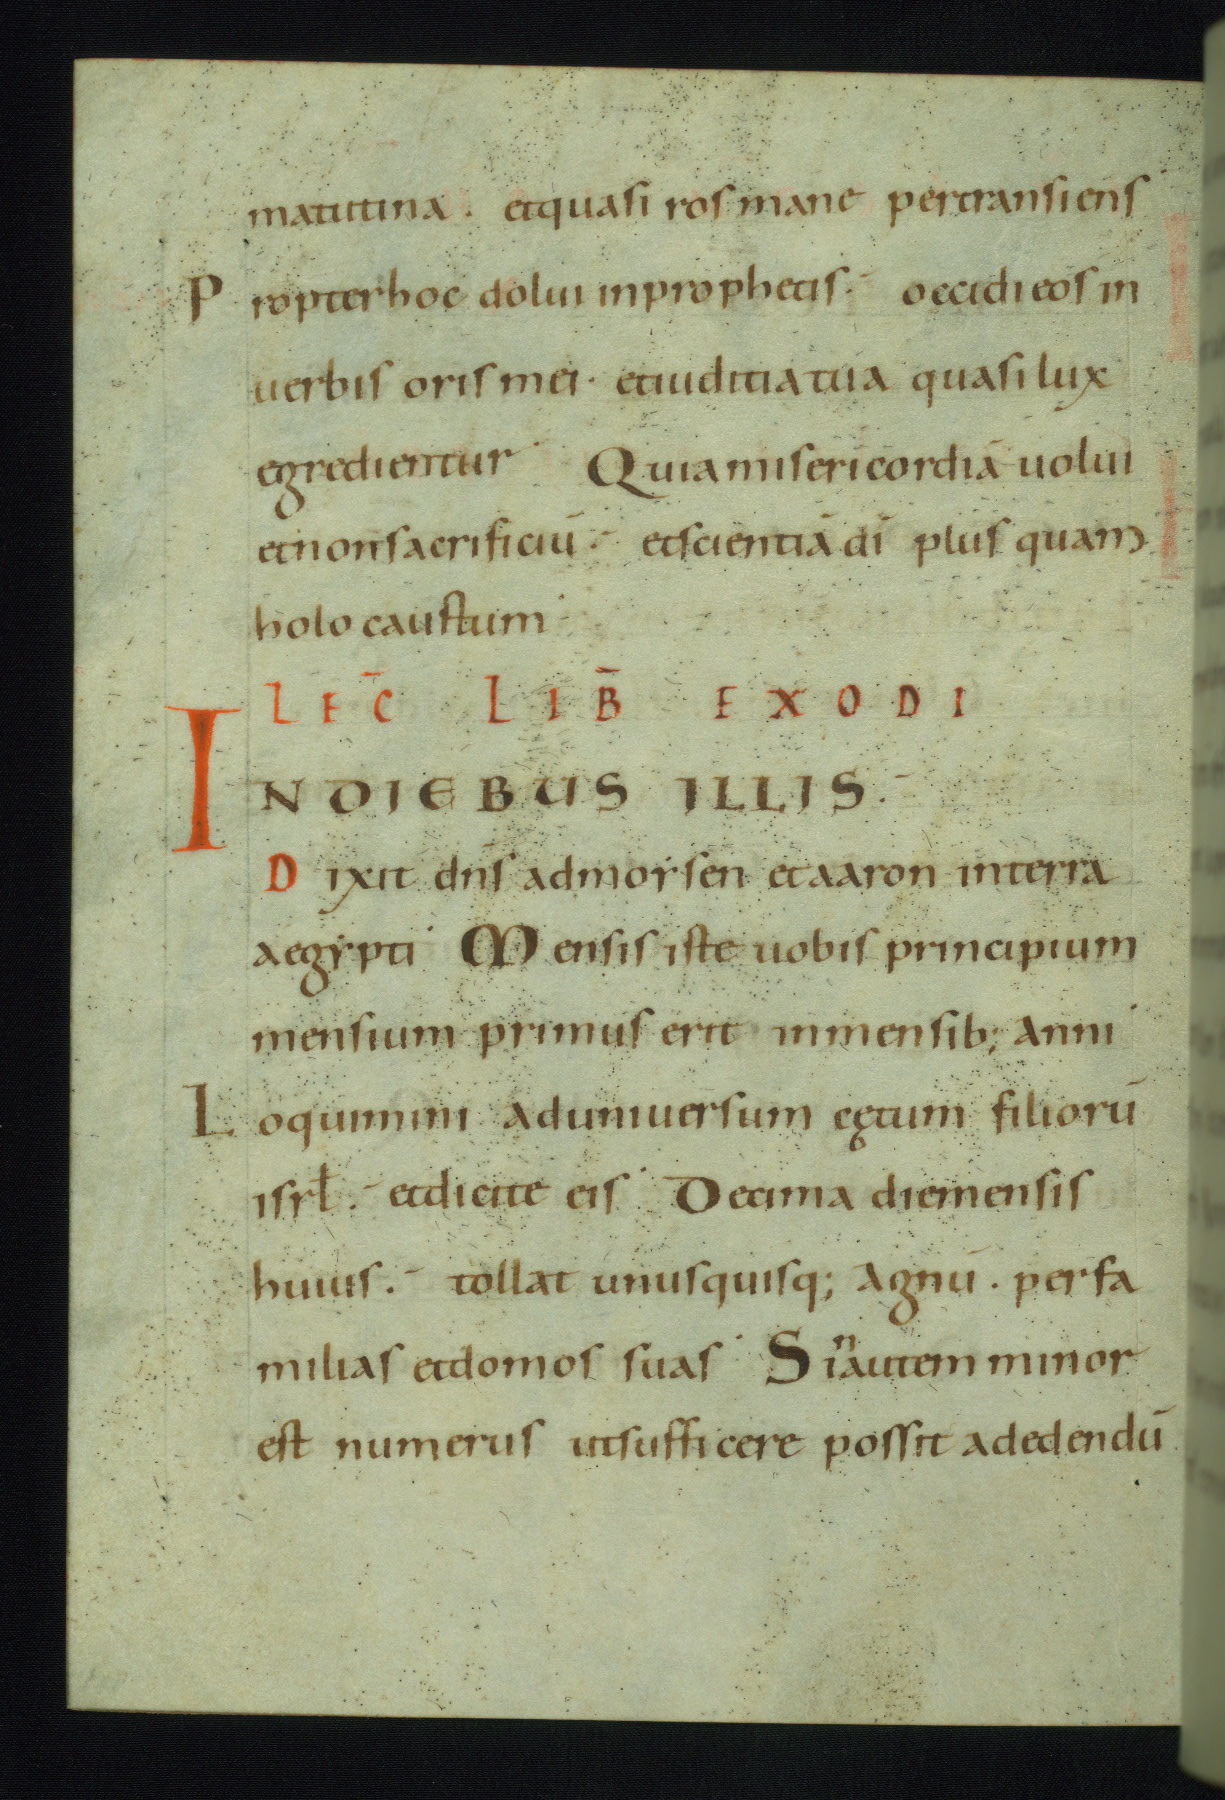 matutina . etquasi ros mane pertransiens
Propterhoc dolui inprophetis. occidi eos in
uerbis oris mei . etiuditia tua quasi lux
egredientur Quia misericordiā uolui
etnonsacrificiū . etscientiā dī plus quam
holocaustum
LEC̄ LIB̄ EXODI
IN DIEBUS ILLIS .
Dixit dn̄s admoysen etaaron interra
aegypti Mensis iste uobis principium
mensium primus erit inmensib; Anni
Loquimini aduniuersum cętum filiorū
isrł . etdicite eis Decima diemensis
huius . tollat unusquisq; Agnū . perfa
milias etdomos suas Sinautem minor
est numerus utsufficere possit adedendū